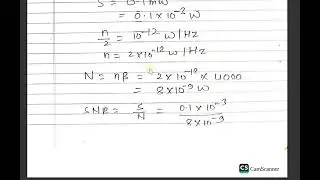 S = 0.1mW
= 0.1 × 10⁻³ W
n/2 = 10⁻¹² W/Hz
n = 2×10⁻¹² W/Hz
N = nB = 2×10⁻¹² × 4000
= 8×10⁻⁹ W
SNR = S/N = 0.1×10⁻³/8×10⁻⁹
CS CamScanner